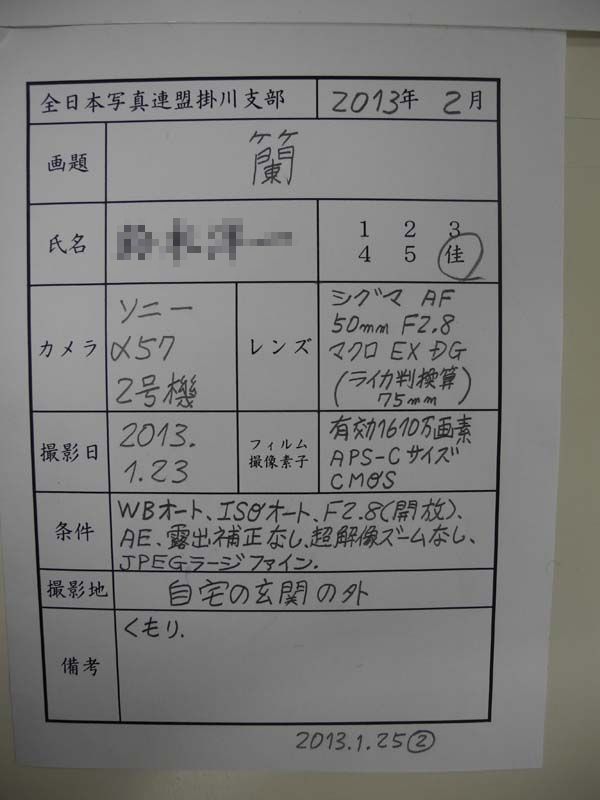 全日本写真連盟掛川支部 2013年 2月
画題 蘭
氏名
1 2 3
4 5 佳
カメラ
ソニー
α57
2号機
レンズ
シグマ AF
50mm F2.8
マクロ EX DG
(ライカ判換算
75mm)
撮影日
2013.
1.23
フィルム
撮像素子
有効1610万画素
APS-Cサイズ
CMOS
条件
WBオート、ISOオート、F2.8(開放)、
AE、露出補正なし、超解像ズームなし、
JPEGラージファイン.
撮影地 自宅の玄関の外
備考
くもり.
2013.1.25②